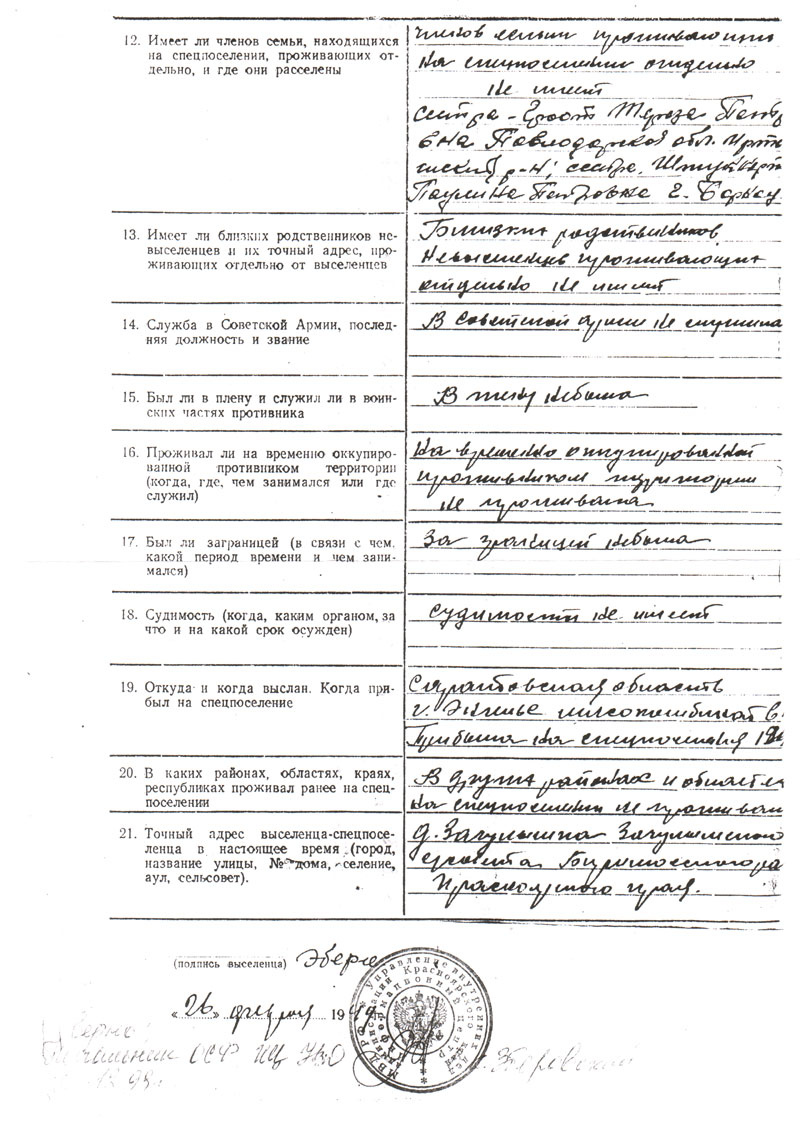 12. Имеет ли членов семьи, находящихся
на спецпоселении, проживающих от-
дельно, и где они расселены
членов семьи проживающих
на спецпоселении отдельно
не имеет
сестра -
Павлодарской обл.
р-н; сестра
Паулина Петровна г.
13. Имеет ли близких родственников не-
выселенцев и их точный адрес, про-
живающих отдельно от выселенцев
Близких родственников
Невыселенцев проживающих
отдельно не имеет
14. Служба в Советской Армии, послед-
няя должность и звание
В Советской армии не служила
15. Был ли в плену и служил ли в воин-
ских частях противника
В плену небыла
16. Проживал ли на временно оккупиро-
ванной противником территории
(когда, где, чем занимался или где
служил)
На временно оккупированной
противником территории
не проживала
17. Был ли заграницей (в связи с чем,
какой период времени и чем зани-
мался)
За границей небыла
18. Судимость (когда, каким органом, за
что и на какой срок осужден)
Судимости не имеет
19. Откуда и когда выслан. Когда при-
был на спецпоселение
Саратовская область
г. Энгельс
Прибыла на спецпоселения
20. В каких районах, областях, краях,
республиках проживал ранее на спец-
поселении
В других районах и
на спецпоселении не
21. Точный адрес выселенца-спецпосе-
ленца в настоящее время (город,
название улицы, № дома, селение,
аул, сельсовет).
д.
Красноярского края.
(подпись выселенца)
„26" февраля 1949
Управление внутренних дел
администрации Красноярского края
МВД РФ
Информационный центр
Верно
Начальник ОСФ ИЦ УВД